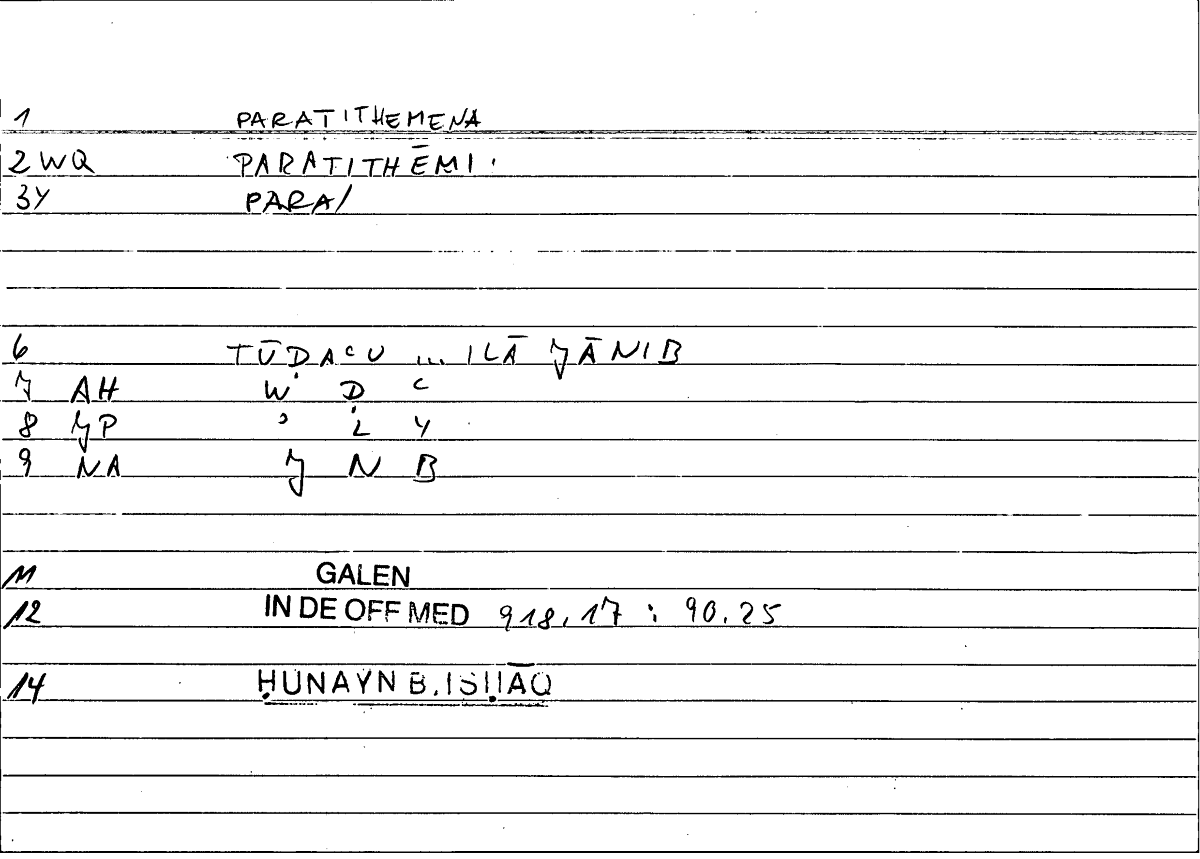 1 PARATITHEMENA
2 WQ PARATITHĒMI.
3Y PARA/
6 TŪḌAᶜU ... ILĀ JĀNIB
7 AH W Ḍ ᶜ
8 JP ʾ L Y
9 NA J N B
11 GALEN
12 IN DE OFF MED 918,17 : 90.25
14 ḤUNAYN B. ISḤĀQ